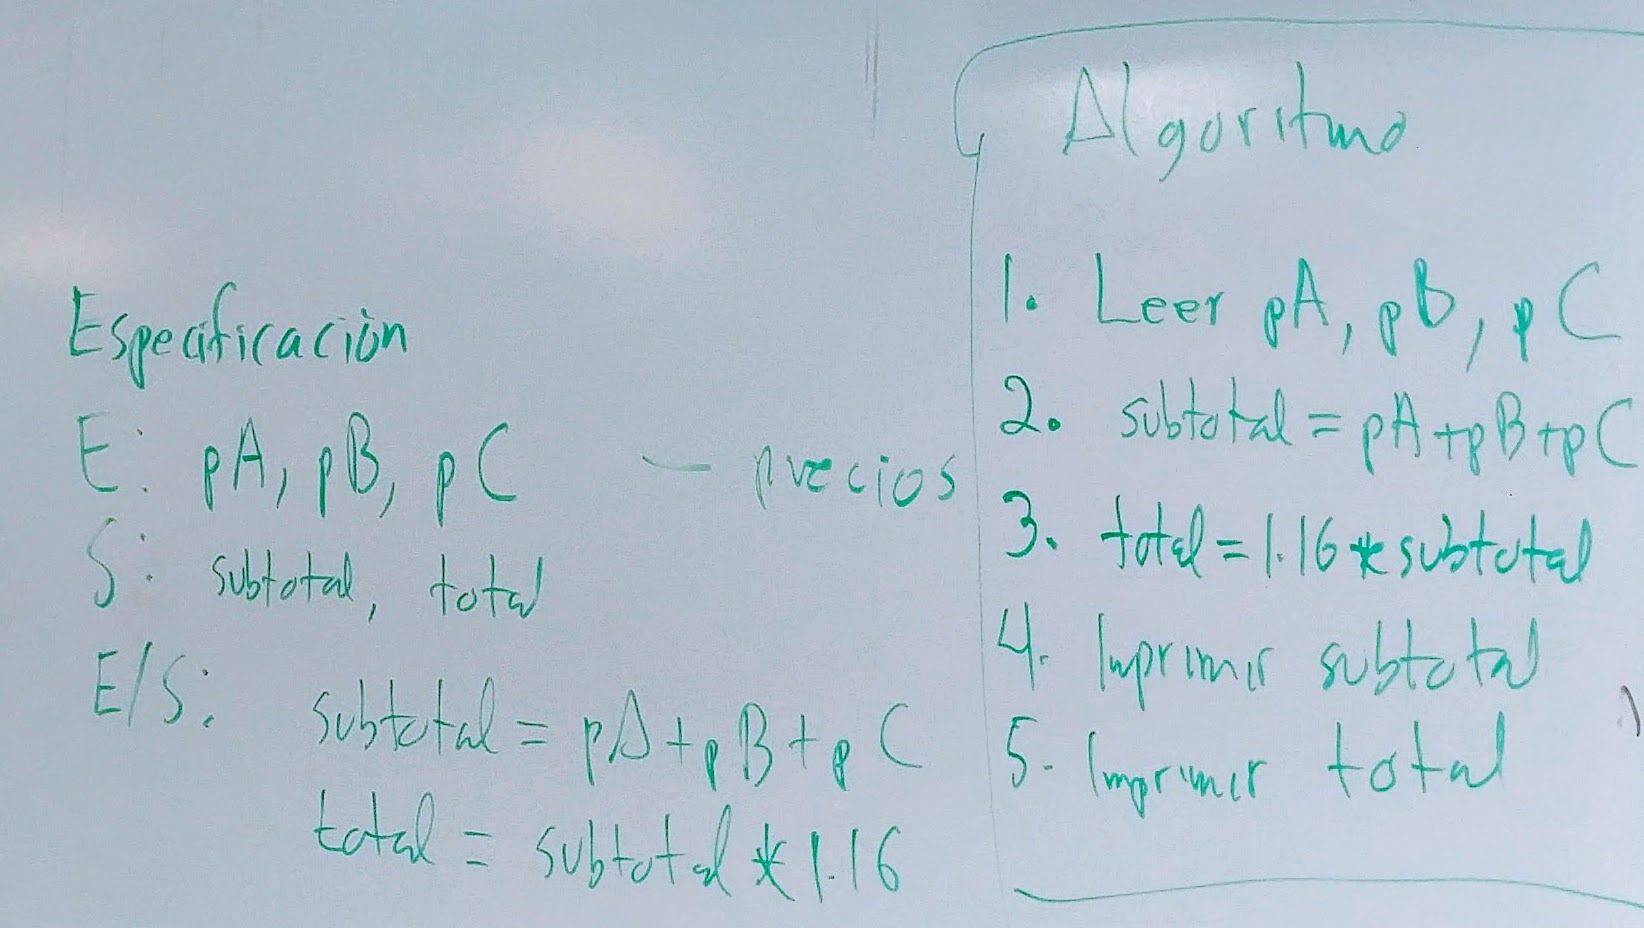 Especificación
E: pA, pB, pC — precios
S: subtotal, total
E/S: subtotal = pA+pB+pC
total = subtotal * 1.16
Algoritmo
1. Leer pA, pB, pC
2. subtotal = pA+pB+pC
3. total = 1.16 * subtotal
4. Imprimir subtotal
5. Imprimir total